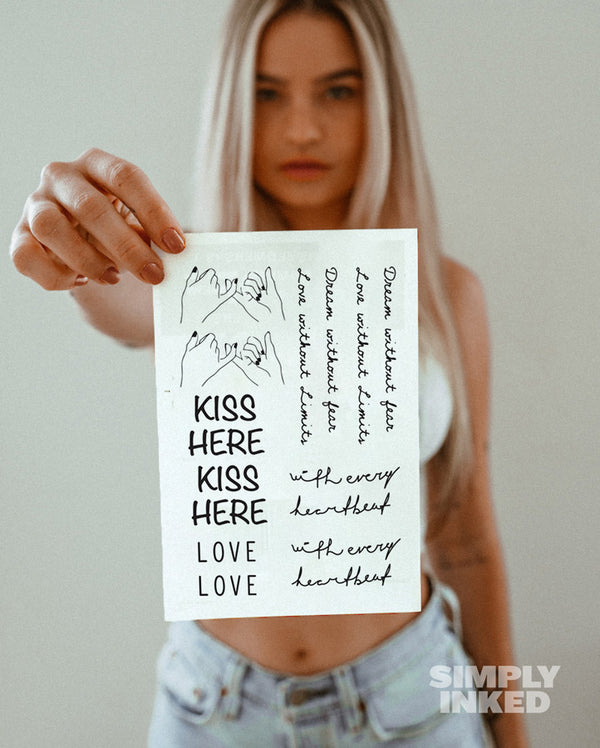 Dream without fear
Love without Limits
Dream without fear
Love without Limits
KISS
HERE
KISS
HERE
with every
heartbeat
LOVE
LOVE
with every
heartbeat
SIMPLY
INKED